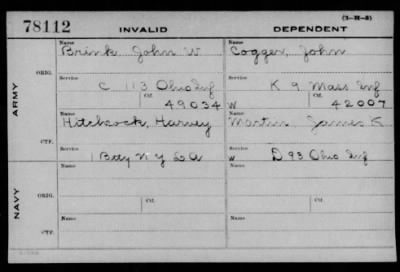 (3-H-5)
78112 INVALID DEPENDENT
Name Name
Brink John W Cogger, John
ORIG. Service Service
C 113 Ohio Inf K 9 Mass Inf
Ctf. Ctf.
49034 W 42007
ARMY
Name Name
Hitchcock, Harvey Martin James K
CTF. Service Service
1 Batty N Y L A W D 93 Ohio Inf
Name Name
ORIG.
Service Ctf. Service Ctf.
NAVY
Name Name
CTF.